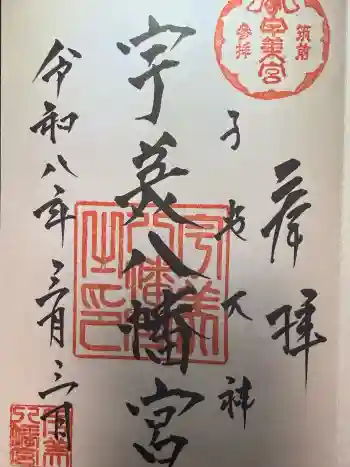 奉拝
筑前
宇美宮
參拝
子安大神
宇美八幡宮
宇美八幡宮之印
令和八年三月三日
宇美八幡宮